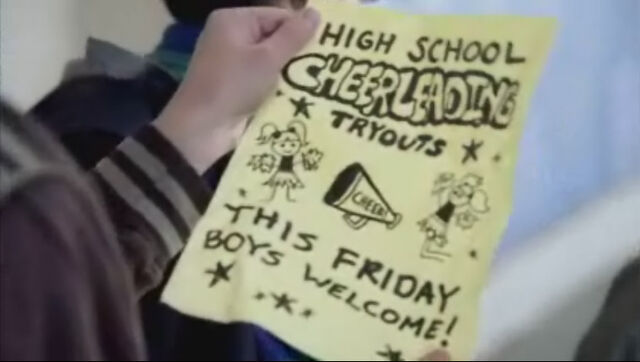 HIGH SCHOOL
CHEERLEADING
TRYOUTS
CHEER!
THIS FRIDAY
BOYS WELCOME!